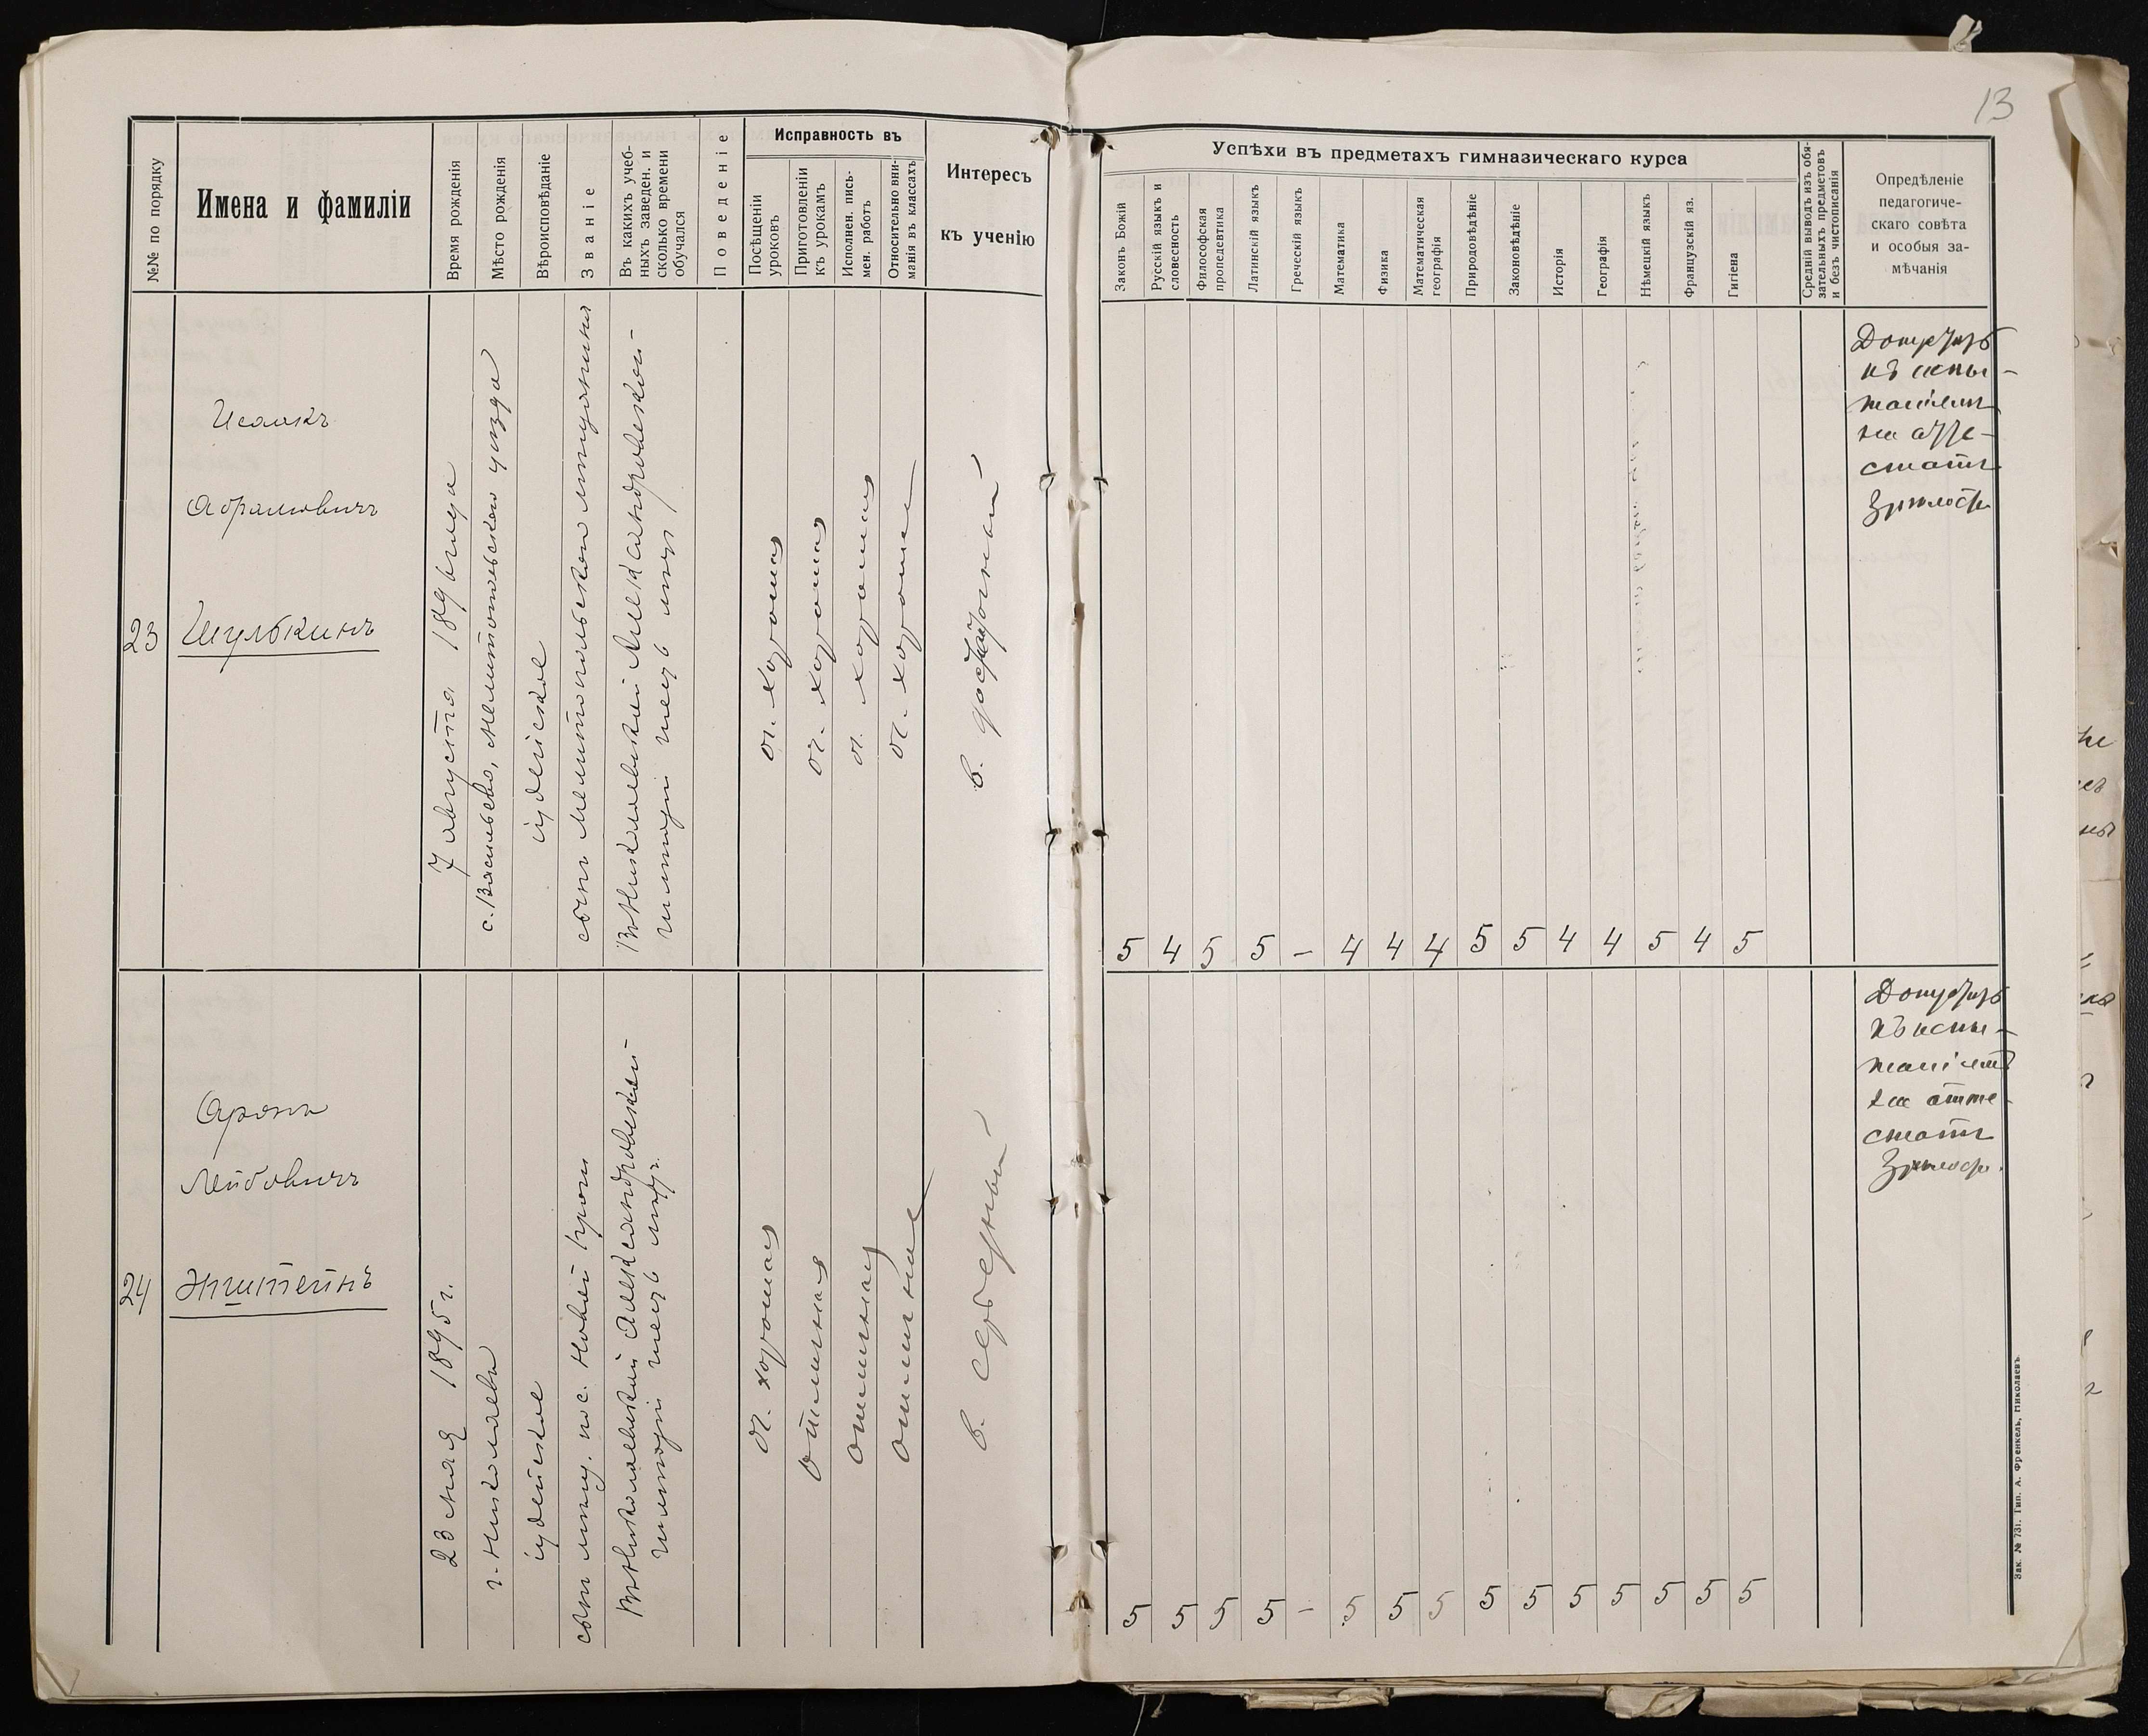 13
№№ по порядку
Имена и фамиліи
Время рожденія
Мѣсто рожденія
Вѣроисповѣданіе
Званіе
Въ какихъ учеб-
ныхъ заведен. и
сколько времени
обучался
Поведеніе
Исправность въ
Посѣщеніи
уроковъ
Приготовленіи
къ урокамъ
Исполнен. пись-
мен. работъ
Относительно вни-
манія въ классахъ
Интересъ
къ ученію
Успѣхи въ предметахъ гимназическаго курса
Законъ Божій
Русскій языкъ и
словесность
Философская
пропедевтика
Латинскій языкъ
Греческій языкъ
Математика
Физика
Математическая
географія
Природовѣдѣніе
Законовѣдѣніе
Исторія
Географія
Нѣмецкій языкъ
Французскій яз.
Гигіена
Средній выводъ изъ обя-
зательныхъ предметовъ
и безъ чистописанія
Опредѣленіе
педагогиче-
скаго совѣта
и особыя за-
мѣчанія
23
Исаакъ
Абрамовичъ
Шулькинъ
7 августа 1896 года
с. Васильево, Мелитопольскаго уѣзда
іудейское
сынъ мелитопольскаго мѣщанина
Въ Николаевской Александровской
гимназіи
оч. хорошая
оч. хорошая
оч. хорошая
оч. хорошее
в.
5 4 5 5 – 4 4 4 5 5 4 4 5 4 5
къ испы-
на атте-
статъ
24
Аронъ
Лейбовичъ
Эпштейнъ
23 мая 1895 г.
г. Николаевъ
іудейское
сынъ мѣщ. пос. Новый
Въ Николаевской Александровской
гимназіи
оч. хорошая
отличная
отличная
отличное
в.
5 5 5 5 – 5 5 5 5 5 5 5 5 5 5
къ испы-
на атте-
статъ
Зак. № 731. Тип. А. Френкель, Николаевъ.